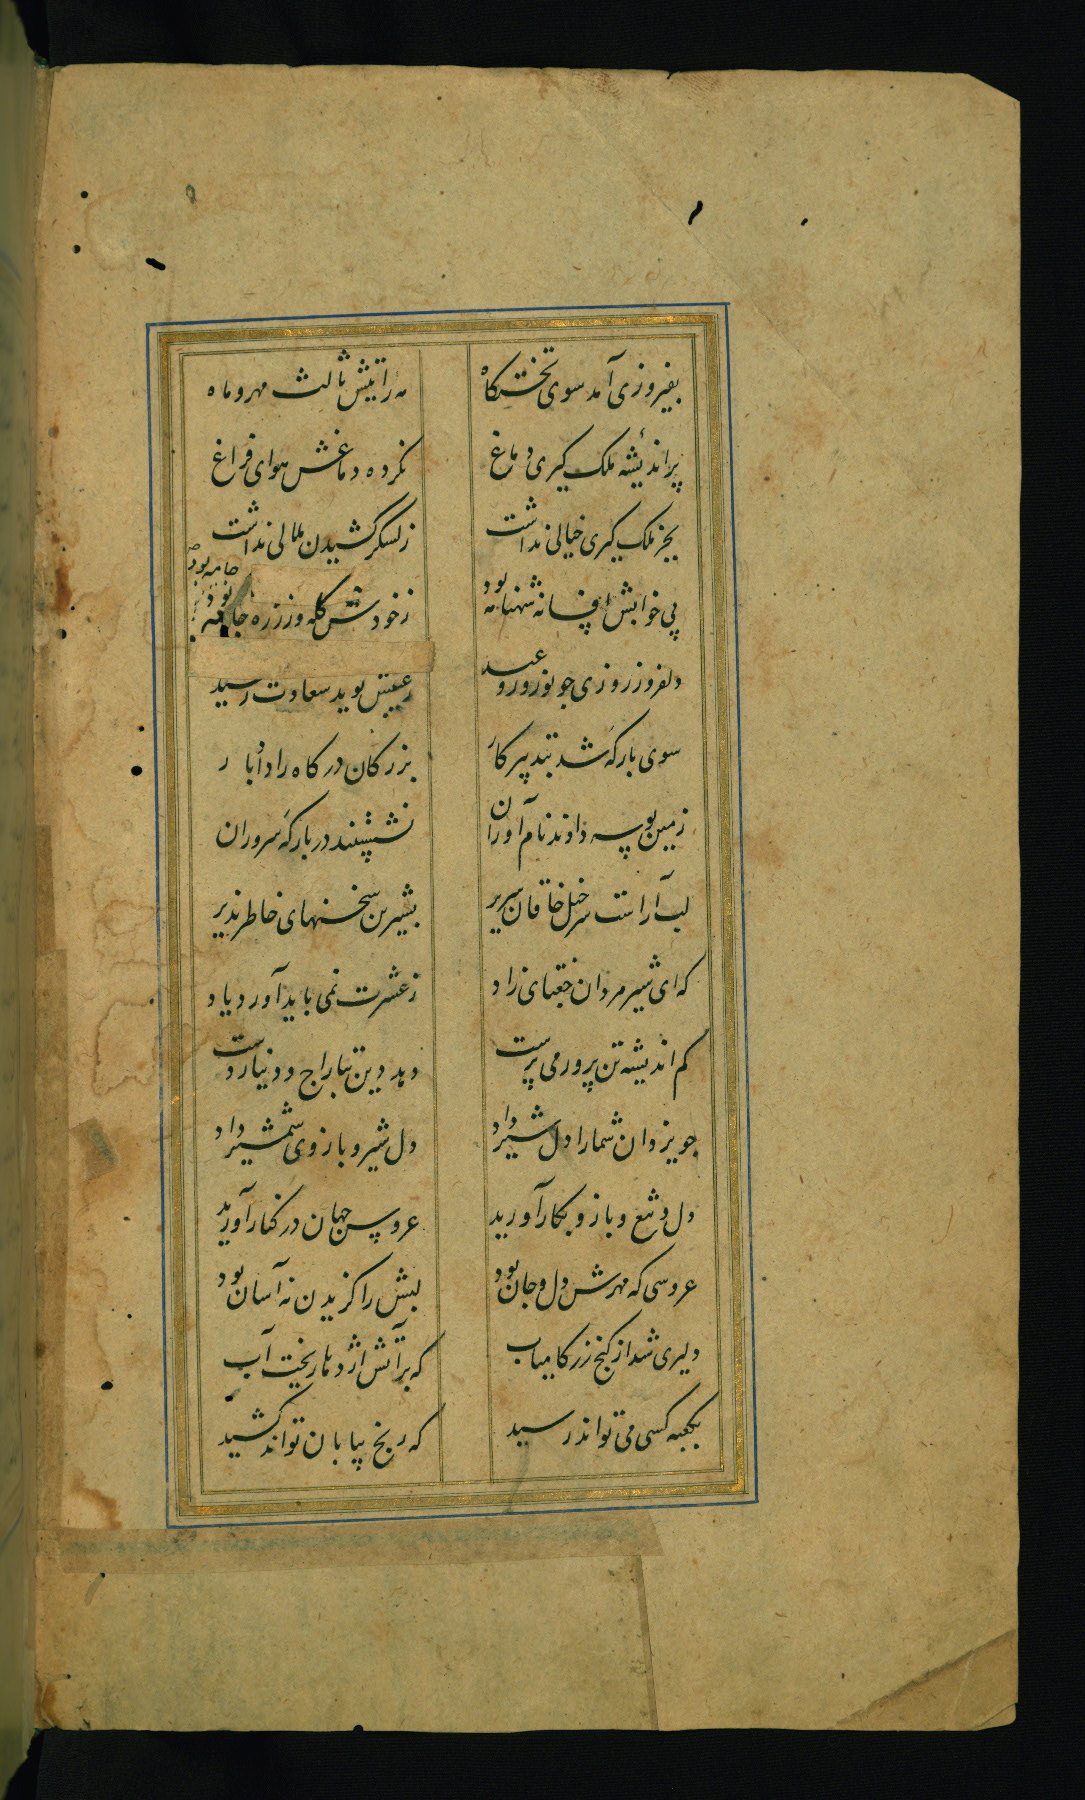 بفیروزی آمد سوی تختگاه مه رایتش ثالث مهر و ماه
پر اندیشهٔ ملک گیری دماغ نکرده دماغش هوای فراغ
بجز ملک گیری خیالی نداشت ز لشکر کشیدن ملالی نداشت
پی خوابش افسانه شهنامه بود ز خودش کله وز زره جامه بود
دلفروز روزی چو نوروز و عید ز عیبش نوید سعادت رسید
سوی بارگه شد بتدبیر کار بزرگان درگاه را داد بار
زمین بوسه دادند نام آوران نشستند در بارگه سروران
لب آراست سرخیل خاقان سریر بشیرین سخنهای خاطر پذیر
که ای شیر مردان جغتای نژاد ز عشرت نمی باید آورد یاد
کم اندیشه تن پرور می پرست دهد دین بتاراج و دنیا ز دست
چو یزدان شما را دل شیر داد دل شیر و بازوی شمشیر داد
دل و تیغ و بازو بکار آورید عروس جهان در کنار آورید
عروسی که مهرش دل و جان بود لبش را گزیدن نه آسان بود
دلیری شد از گنج زر کامیاب که بر آتش اژدها ریخت آب
بکعبه کسی می تواند رسید که رنج بیابان تواند کشید